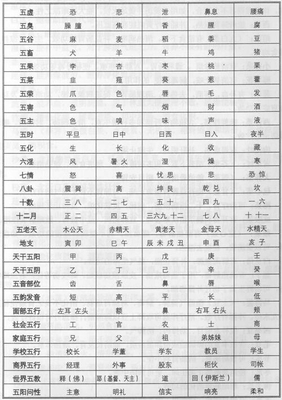 五虚 恐 悲 泄 鼻息 腰痛
五臭 臊膻 焦 香 腥 腐
五谷 麻 麦 稻 黍 豆
五畜 犬 羊 牛 鸡 猪
五果 李 杏 枣 桃 栗
五菜 韭 薤 葵 葱 藿
五荣 爪 色 唇 毛 发
五害 色 气 烟 财 酒
五主 色 嗅 味 声 液
五时 平旦 日中 日西 日入 夜半
五化 生 长 化 收 藏
六淫 风 暑 火 湿 燥 寒
七情 怒 喜 忧思 悲 恐惊
八卦 震巽 离 坤艮 乾兑 坎
十数 三八 二七 五十 四九 一六
十二月 正二 四五 三六九十二 七八 十十一
五老天 木公天 赤精天 黄老天 金母天 水精天
地支 寅卯 巳午 辰未戌丑 申酉 亥子
天干五阳 甲 丙 戊 庚 壬
天干五阴 乙 丁 己 辛 癸
五音部位 齿 舌 鼻 唇 喉
五韵发音 短 高 平 长 低
面部五行 左耳左头 额 鼻 右耳右头 颏
社会五行 工 官 农 士 商
家庭五行 兄 父 祖 弟姊妹 母
学校五行 校长 学董 学东 教员 学生
商界五行 经理 外事 股东 柜伙 司帐
世界五教 释(佛) 耶(基督、天主) 道 回(伊斯兰) 儒
五阳问性 主意 明礼 信实 响亮 柔和